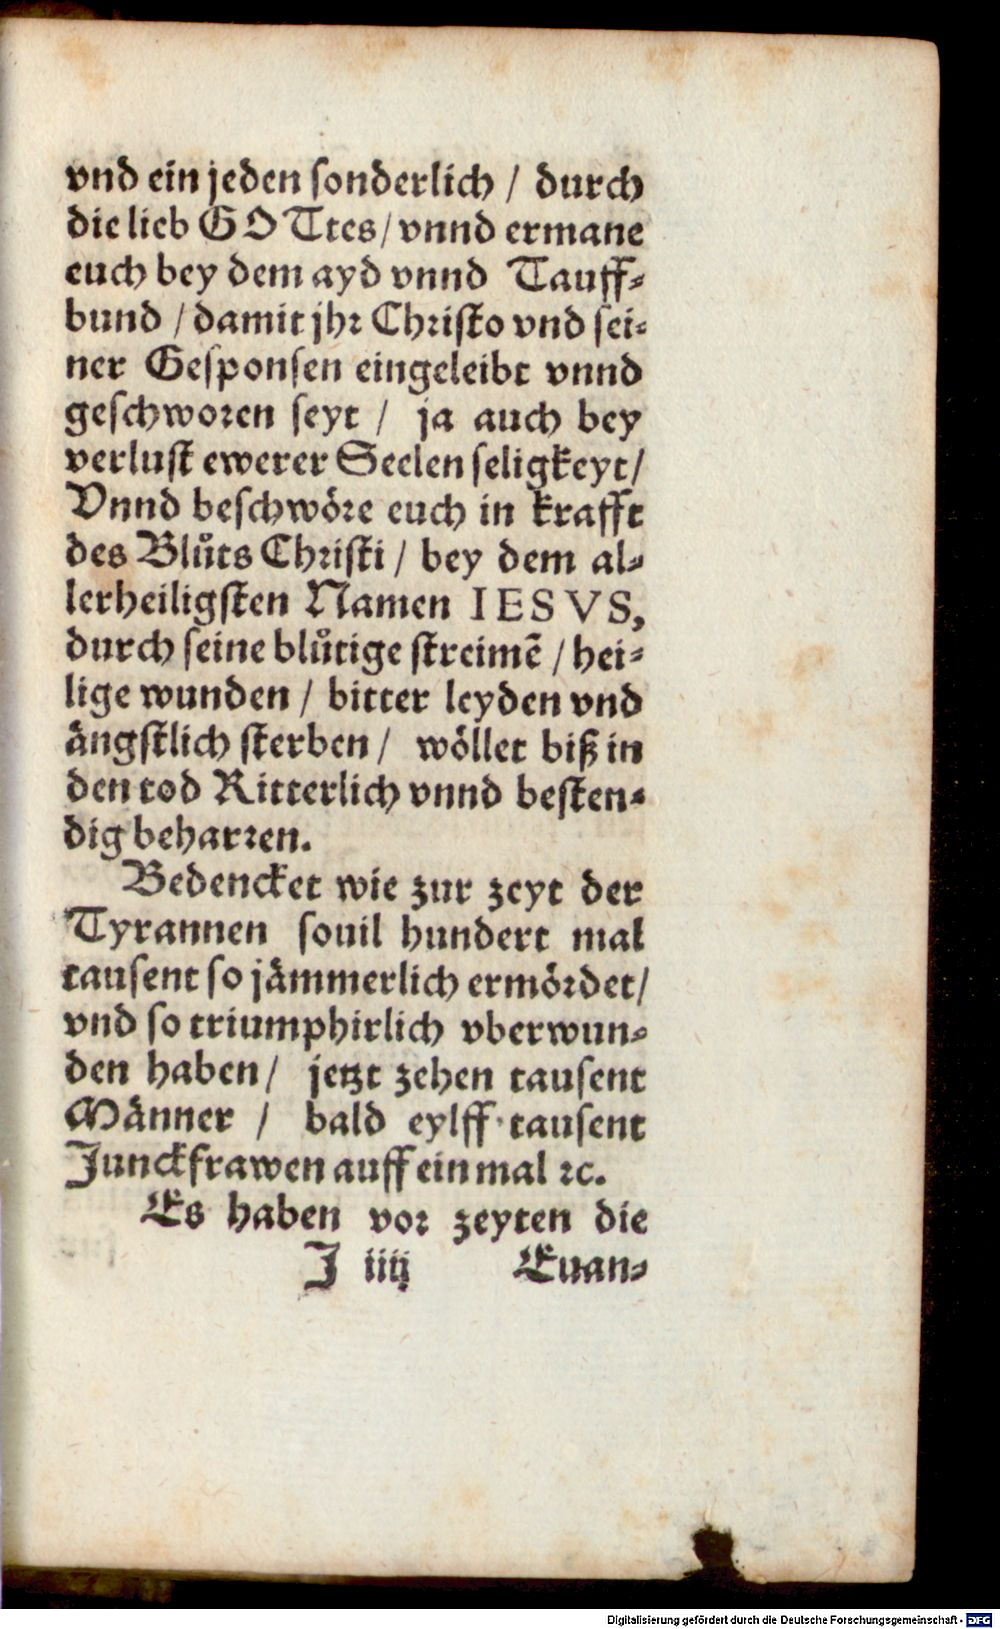 vnd ein jeden ſonderlich / durch
die lieb GOTtes / vnnd ermane
euch bey dem ayd vnnd Tauff⸗
bund / damit jhꝛ Chꝛiſto vnd ſei⸗
ner Geſponſen eingeleibt vnnd
geſchwoꝛen ſeyt / ja auch bey
verluſt ewerer Seelen ſeligkeyt /
Vnnd beſchwöꝛe euch in krafft
des Blůts Chꝛiſti / bey dem al⸗
lerheiligſten Namen IESVS,
durch ſeine blůtige ſtreimẽ / hei⸗
lige wunden / bitter leyden vnd
ängſtlich ſterben / wöllet biß in
den tod Ritterlich vnnd beſten⸗
dig beharꝛen.
Bedencket wie zur zeyt der
Tyrannen ſouil hundert mal
tauſent ſo jämmerlich ermöꝛdet /
vnd ſo triumphirlich vberwun⸗
den haben / jetzt zehen tauſent
Männer / bald eylff tauſent
Junckfrawen auff ein mal ꝛc.
Es haben voꝛ zeyten die
J iiij Euan⸗
Digitalisierung gefördert durch die Deutsche Forschungsgemeinschaft - DFG